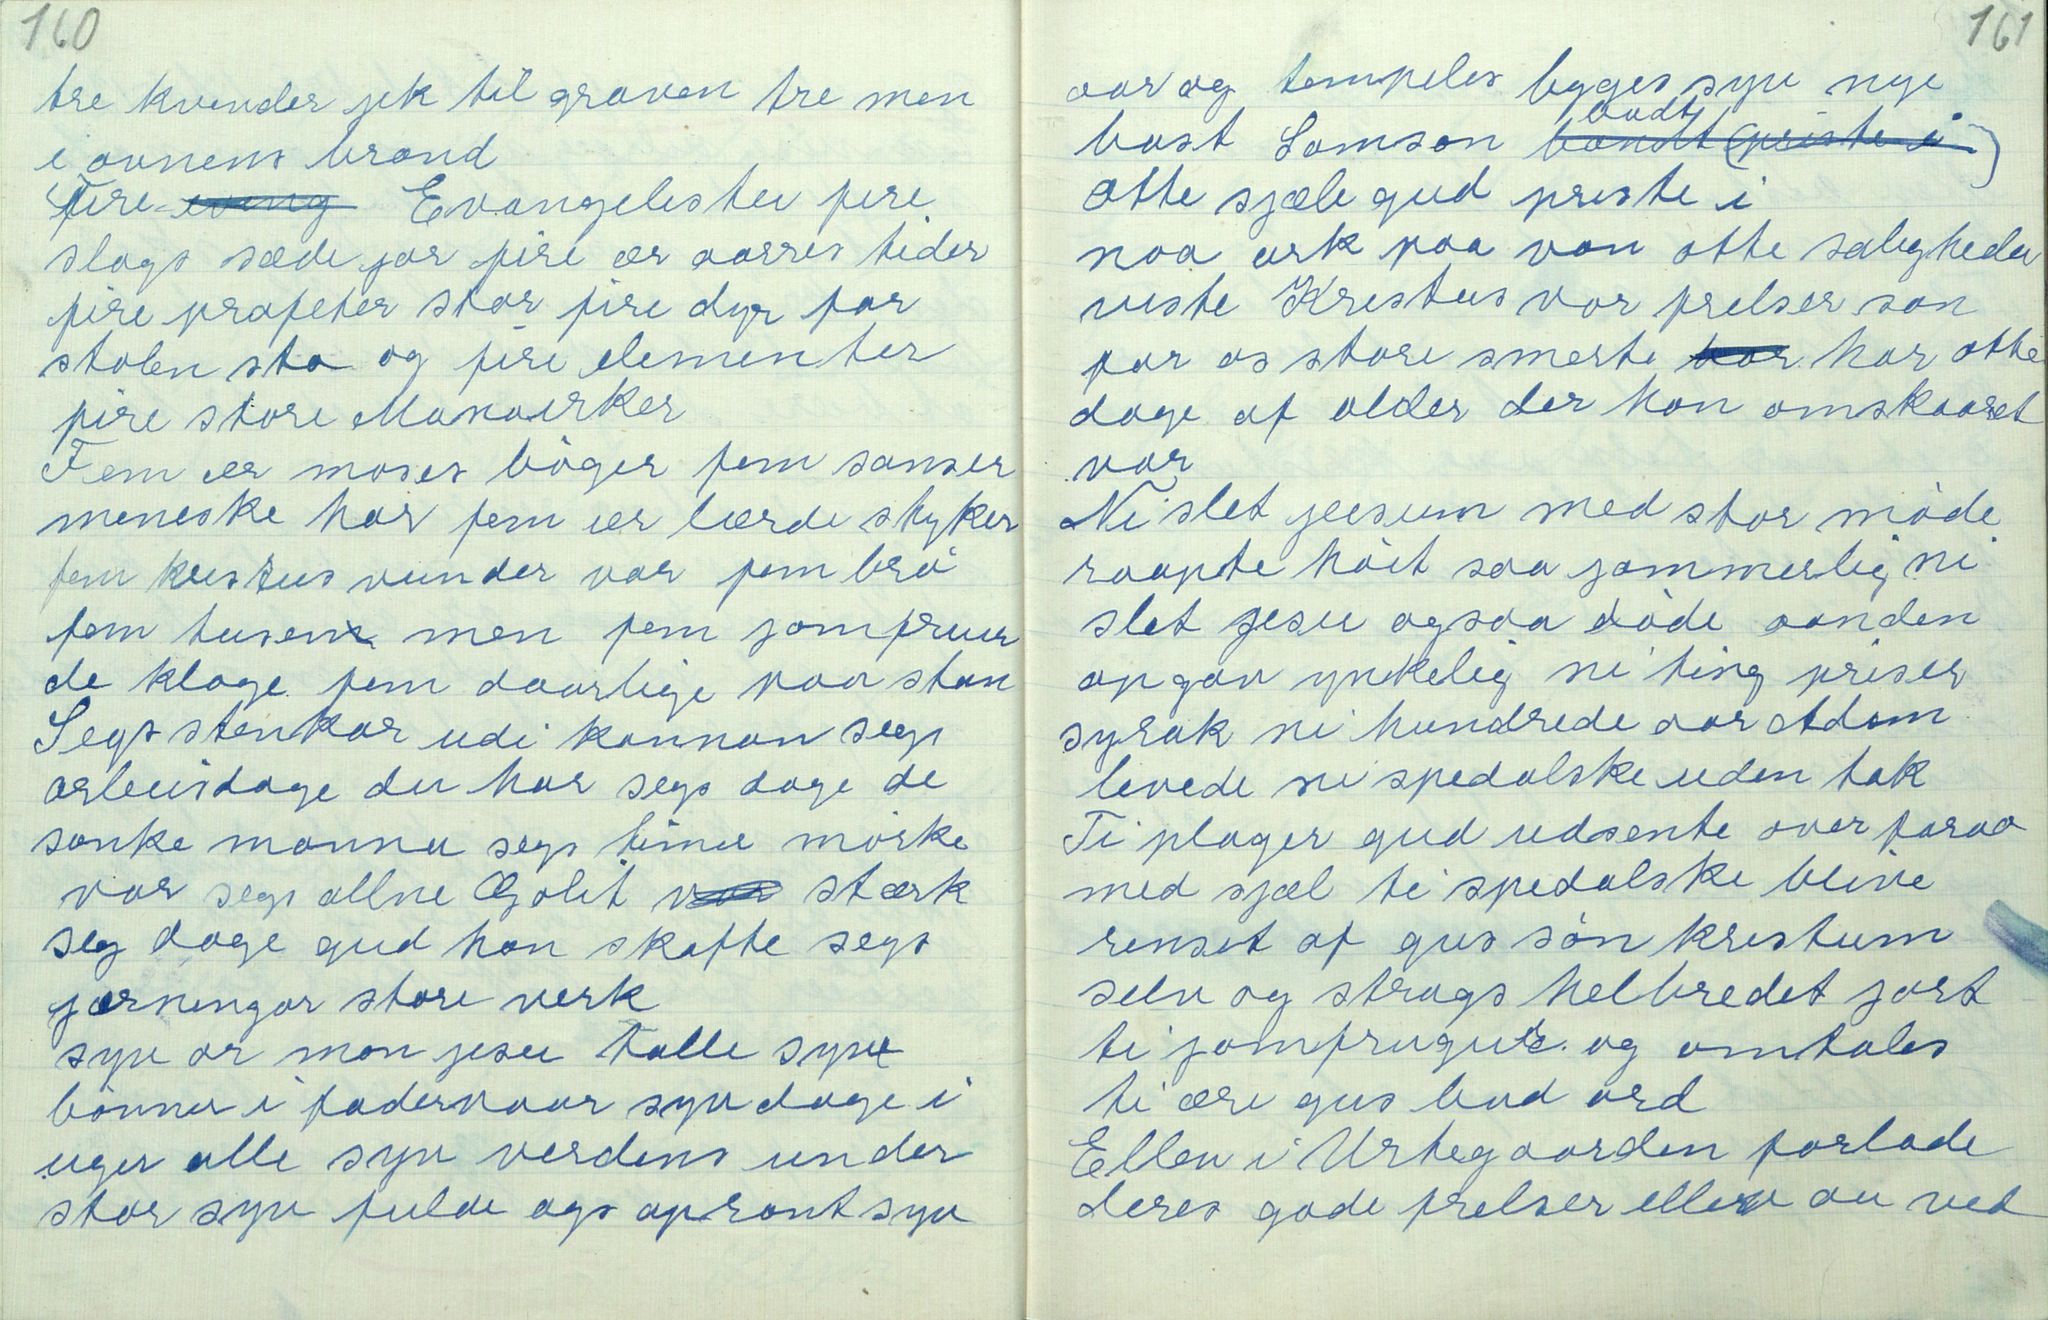 160
tre kvinder jik til graven tre men
i ovnens brand
Fire eving Evangelister fire
slags sæde jor fire ær aarres tider
fire profeter stor fire dyr for
stolen sto og fire elementer
fire store Monarker
Fem ær moses böger fem sanser
meneske har fem ær lærde styker
fem kristus vunder var fem brö
fem tusen men fem jomfruer
de kloge fem daarlige van stan
Segs stenkar udi kannan segs
arbeisdage du har segs dage de
sanke manna segs timer mörke
var segs allne Golit var stærk
seg dage gud han skafte segs
jærningar store verk
syv or mon jesu talle syv
bönner i fadervaar syv dage i
uger alle syv verdens under
stor syv fulde ags oprant syv
161
aar og tempeles byges syv nye
bast Samson bandt (priste i)
badt
otte sjæle gud priste i
noa ark paa van otte saligheder
viste Kristus vor frelser son
for os store smerte har har otte
dage af alder der han omskaaret
var
Ni slet jeesum med stor möde
raapte höit saa jammerlig ni
slet jesu ogsaa döde aanden
opgav ynkelig ni ting priser
syrak ni hundrede aar Adam
levede ni spedalske uden tak
Ti plager gud udsente over farao
med sjæl ti spedalske blive
renset af gus sön kristum
selv og strags helbredet jort
ti jomfruguer og omtales
ti ære gus bud ord
Ellev i Urtegaarden forlade
deres gode frelser ellev au ved